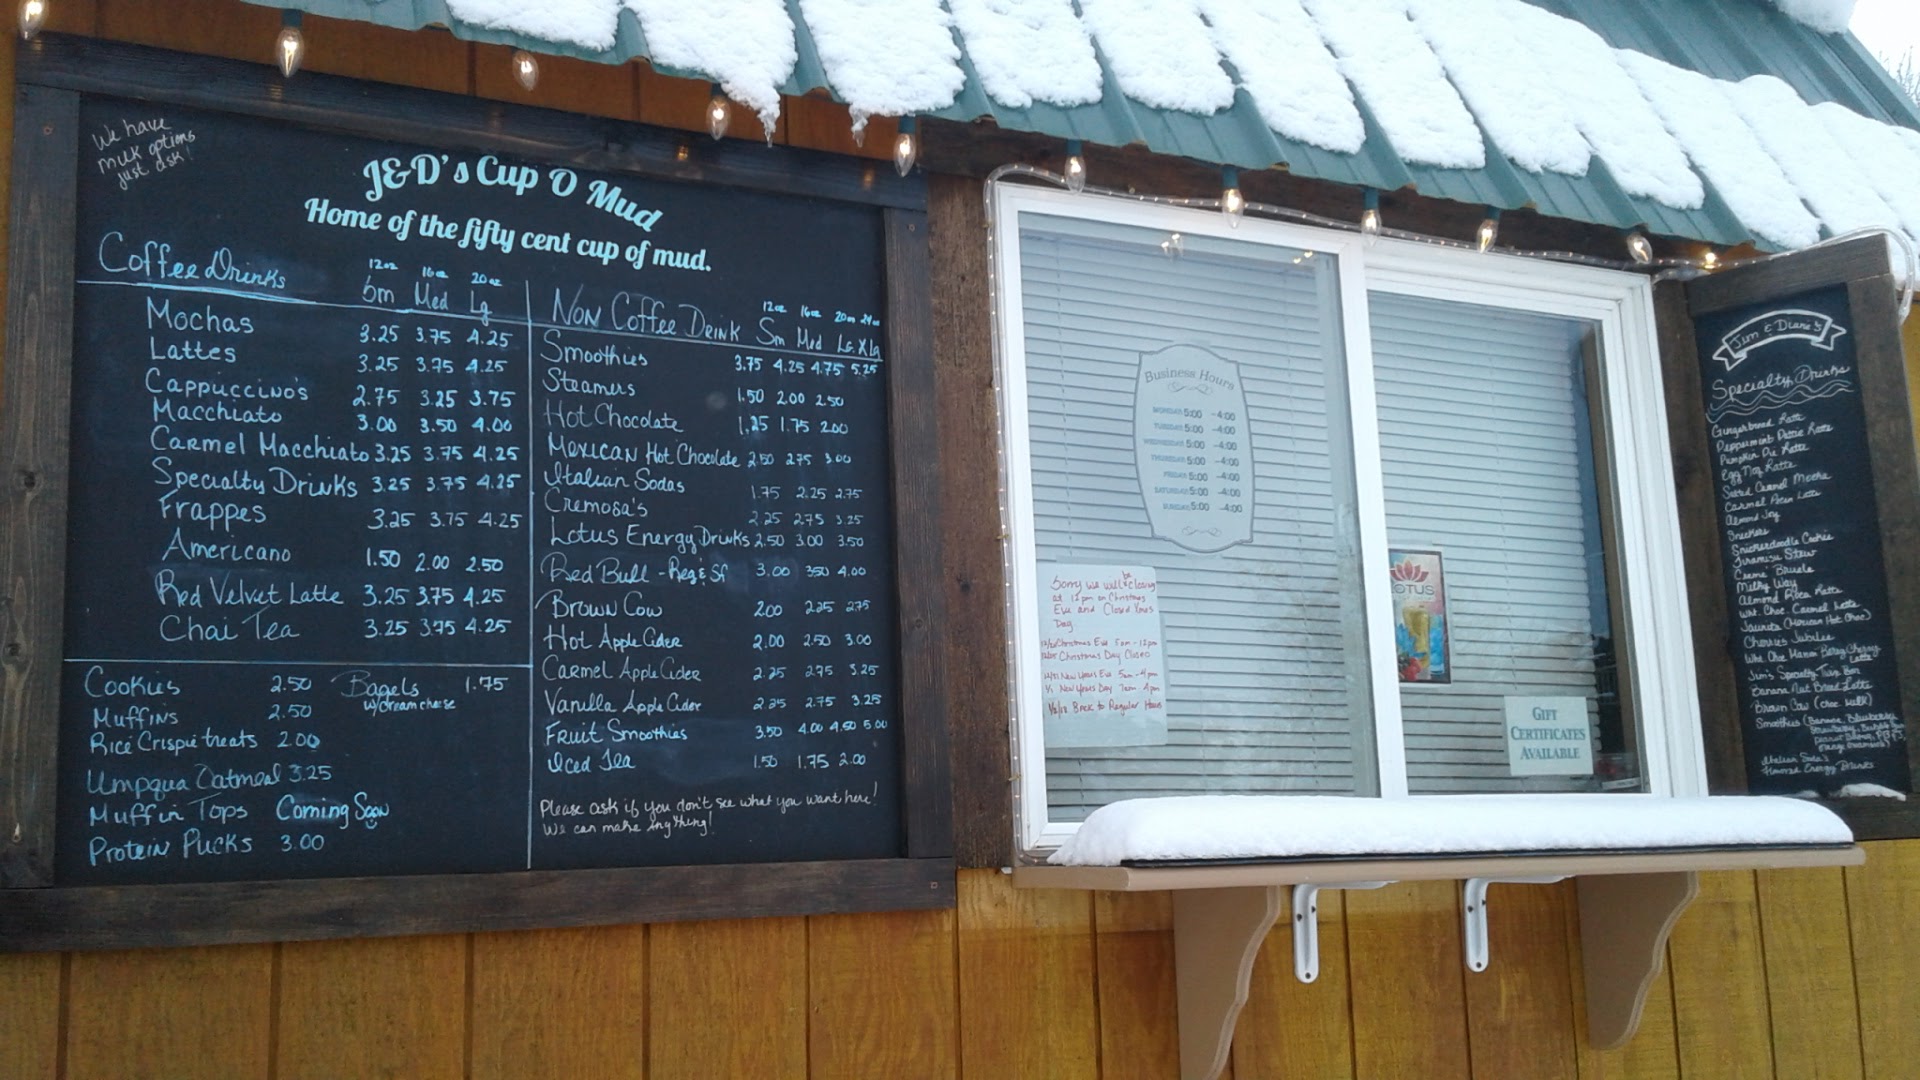 We have
milk options
just ask!
J&D's Cup O Mud
Home of the fifty cent cup of mud.
Coffee Drinks
12oz 16oz 20oz
Sm Med Lg
Mochas 3.25 3.75 4.25
Lattes 3.25 3.75 4.25
Cappuccino's 2.75 3.25 3.75
Macchiato 3.00 3.50 4.00
Carmel Macchiato 3.25 3.75 4.25
Specialty Drinks 3.25 3.75 4.25
Frappes 3.25 3.75 4.25
Americano 1.50 2.00 2.50
Red Velvet Latte 3.25 3.75 4.25
Chai Tea 3.25 3.75 4.25
Cookies 2.50
Muffins 2.50
Rice Crispie treats 2.00
Umpqua Oatmeal 3.25
Muffin Tops Coming Soon
Protein Pucks 3.00
Bagels 1.75
w/cream cheese
Non Coffee Drink
12oz 16oz 20oz 24oz
Sm Med Lg. XLg
Smoothies 3.75 4.25 4.75 5.25
Steamers 1.50 2.00 2.50
Hot Chocolate 1.25 1.75 2.00
Mexican Hot Chocolate 2.50 2.75 3.00
Italian Sodas 1.75 2.25 2.75
Cremosa's 2.25 2.75 3.25
Lotus Energy Drinks 2.50 3.00 3.50
Red Bull - Reg & Sf 3.00 3.50 4.00
Brown Cow 2.00 2.25 2.75
Hot Apple Cider 2.00 2.50 3.00
Carmel Apple Cider 2.25 2.75 3.25
Vanilla Apple Cider 2.25 2.75 3.25
Fruit Smoothies 3.50 4.00 4.50 5.00
Iced Tea 1.50 1.75 2.00
Please ask if you don't see what you want here!
We can make anything!
Business Hours
MONDAY 5:00 -4:00
TUESDAY 5:00 -4:00
WEDNESDAY 5:00 -4:00
THURSDAY 5:00 -4:00
FRIDAY 5:00 -4:00
SATURDAY 5:00 -4:00
SUNDAY 5:00 -4:00
Sorry we will be closing
at 12pm on Christmas
Eve and Closed Xmas
Day
12/24 Christmas Eve 5am-12pm
12/25 Christmas Day Closed
12/31 New Years Eve 5am-4pm
1/1 New Years Day 7am-4pm
1/2/18 Back to Regular Hours
LOTUS
GIFT
CERTIFICATES
AVAILABLE
Jim & Diane's
Specialty Drinks
Gingerbread Latte
Peppermint Pattie Latte
Pumpkin Pie Latte
Egg Nog Latte
Salted Caramel Mocha
Carmel Pecan Latte
Almond Joy
Snickers
Snickerdoodle Cookie
Tiramisu Stew
Creme Brule
Milky Way
Almond Roca Latte
Wht. Choc. Caramel Latte
(Mexican Hot Choc)
Cherries Jubilee
Latte
Jim's Specialty
Banana Nut Bread Latte
Brown Cow (choc milk)
Smoothies (Banana, Blueberry
Italian Soda's
Energy Drinks